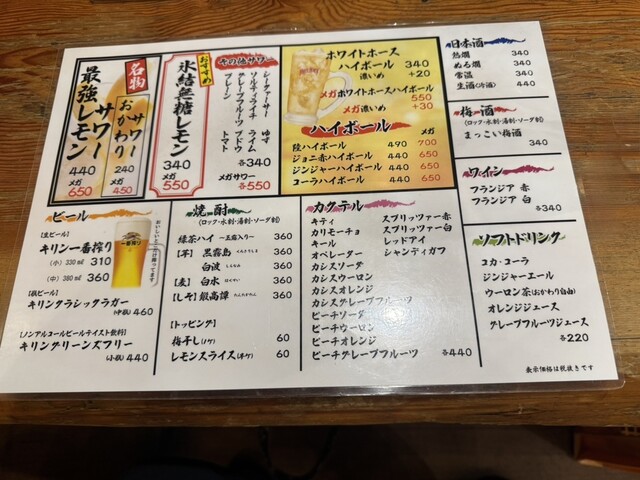 名物
最強レモンサワー
440
メガ
650
おかわりサワー
240
メガ
450
おすすめ
氷結無糖レモン
340
メガ
550
その他サワー
レーフアーサー
ゆず
ライム
トマト
各340
メガサワー
各550
ホワイトホース
ハイボール 340
濃いめ +20
メガホワイトホースハイボール
550
メガ濃いめ +30
ハイボール メガ
陸ハイボール 490 700
ジョニ赤ハイボール 440 650
ジンジャーハイボール 440 650
コーラハイボール 440 650
日本酒
熱燗 340
ぬる燗 340
常温 340
生酒(冷酒) 440
梅酒
(ロック・水割・湯割・ソーダ割)
まっこい梅酒 340
ワイン
フランジア 赤
フランジア 白
各340
ソフトドリンク
コカ・コーラ
ジンジャーエール
ウーロン茶(おかわり自由)
オレンジジュース
グレープフルーツジュース
各220
ビール
【生ビール】
キリン一番搾り
(小) 330ml 310
(中) 380ml 360
一番搾り
キリンクラシックラガー
(中瓶) 460
【ノンアルコールビールテイスト飲料】
キリングリーンズフリー
(小瓶) 440
焼酎
(ロック・水割・湯割・ソーダ割)
緑茶ハイ 360
【芋】 黒霧島 360
白波 360
【麦】 白水 360
【しそ】 鍛高譚 360
【トッピング】
梅干し(1ケ) 60
レモンスライス 60
カクテル
キティ
カリモーチョ
キール
オペレーター
カシスソーダ
カシスウーロン
カシスオレンジ
カシスグレープフルーツ
ピーチソーダ
ピーチウーロン
ピーチオレンジ
ピーチグレープフルーツ
スプリッツァー赤
スプリッツァー白
レッドアイ
シャンディガフ
各440
表示価格は税抜きです